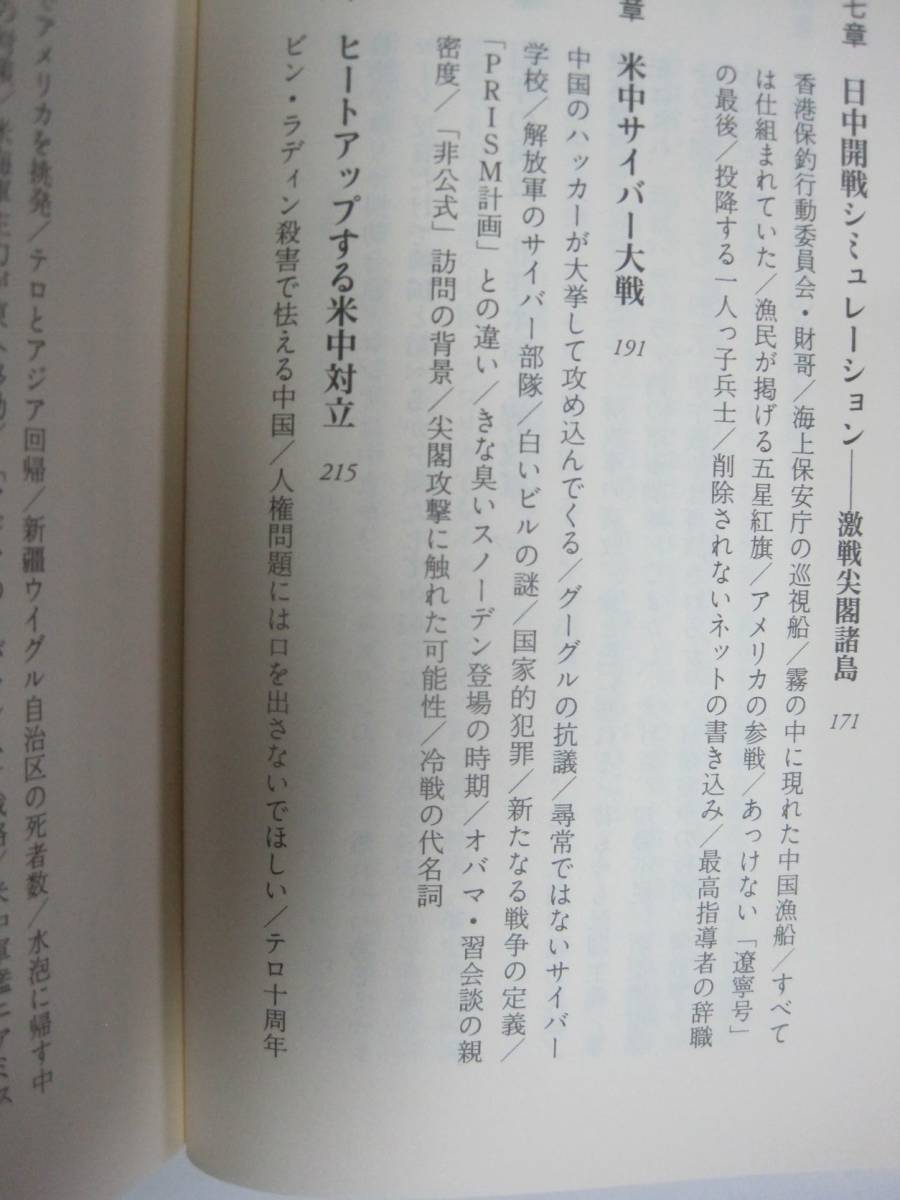 七章 日中開戦シミュレーション――激戦尖閣諸島 171
香港保釣行動委員会・財哥/海上保安庁の巡視船/霧の中に現れた中国漁船/すべて
は仕組まれていた/漁民が掲げる五星紅旗/アメリカの参戦/あっけない「遼寧号」
の最後/投降する一人っ子兵士/削除されないネットの書き込み/最高指導者の辞職
章 米中サイバー大戦 191
中国のハッカーが大挙して攻め込んでくる/グーグルの抗議/尋常ではないサイバー
学校/解放軍のサイバー部隊/白いビルの謎/国家的犯罪/新たなる戦争の定義/
「PRISM計画」との違い/きな臭いスノーデン登場の時期/オバマ・習会談の親
密度/「非公式」訪問の背景/尖閣攻撃に触れた可能性/冷戦の代名詞
ヒートアップする米中対立 215
ビン・ラディン殺害で怯える中国/人権問題には口を出さないでほしい/テロ十周年
でアメリカを挑発/テロとアジア回帰/新疆ウイグル自治区の死者数/水泡に帰す中